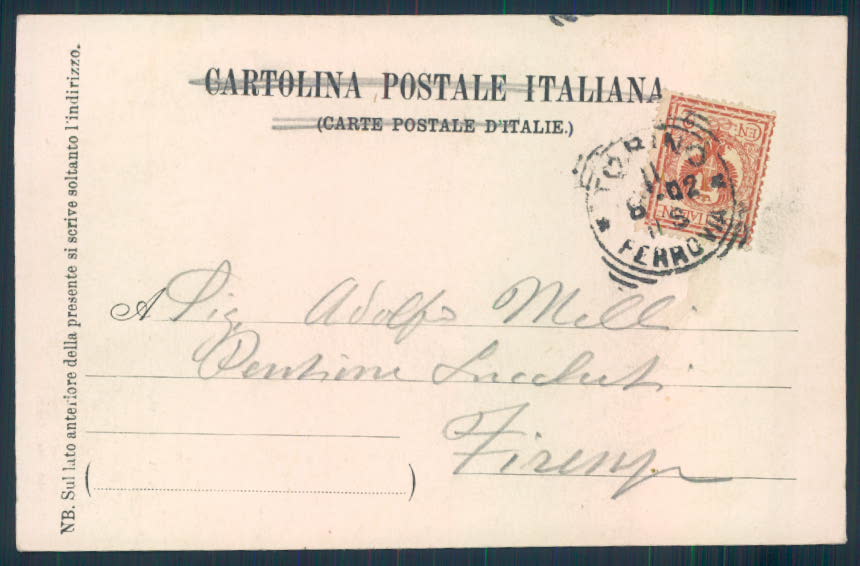 CARTOLINA POSTALE ITALIANA
(CARTE POSTALE D'ITALIE.)
TORINO
02
FERROVIA
A Sig. Adolfo Melli
Firenze
NB. Sul lato anteriore della presente si scrive soltanto l'indirizzo.